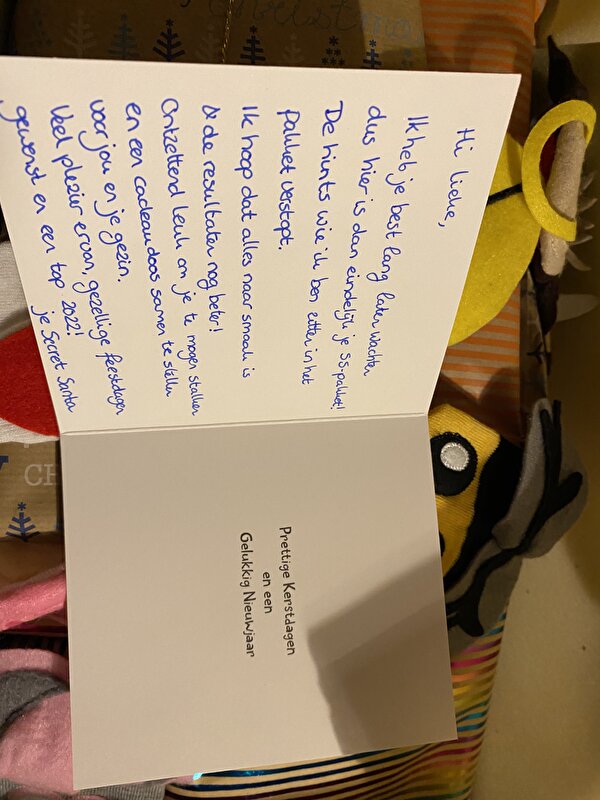 Hi lieke,
Ik heb je best lang laten wachten
dus hier is dan eindelijk je SS-pakket!
De hints wie ik ben zitten in het
pakket verstopt.
Ik hoop dat alles naar smaak is
& de resultaten nog beter!
Ontzettend leuk om je te mogen stalken
en een cadeaudoos samen te stellen
voor jou en je gezin.
Veel plezier ervan, gezellige feestdagen
gewenst en een top 2022!
je Secret Santa
Prettige Kerstdagen
en een
Gelukkig Nieuwjaar
CH